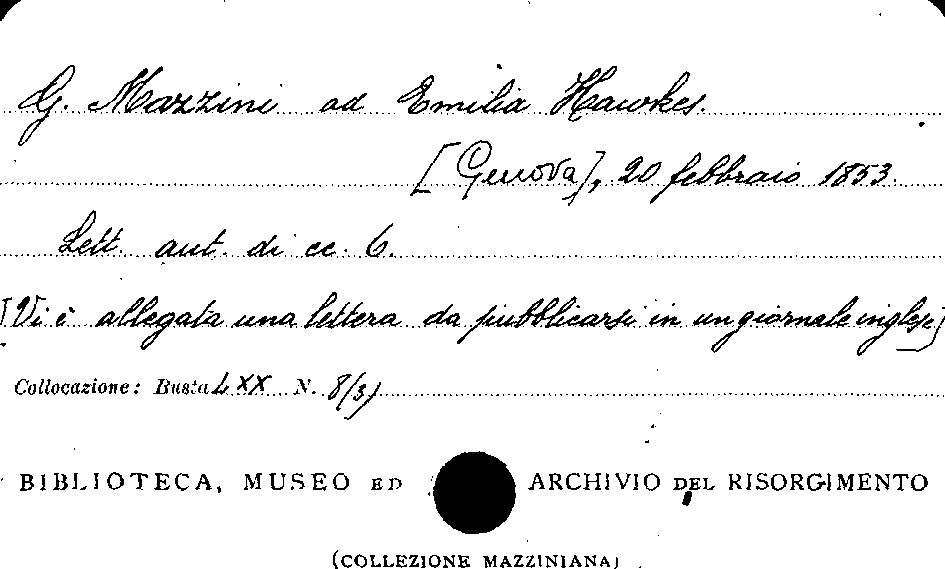 G. Mazzini ad Emilia Hawkes.
[Genova], 20 febbraio 1853.
Lett. aut. di cc. 6.
[Vi è allegata una lettera da pubblicarsi in un giornale inglese]
Collocazione: Busta LXX N. 8/3)
BIBLIOTECA, MUSEO ED ARCHIVIO DEL RISORGIMENTO
(COLLEZIONE MAZZINIANA)